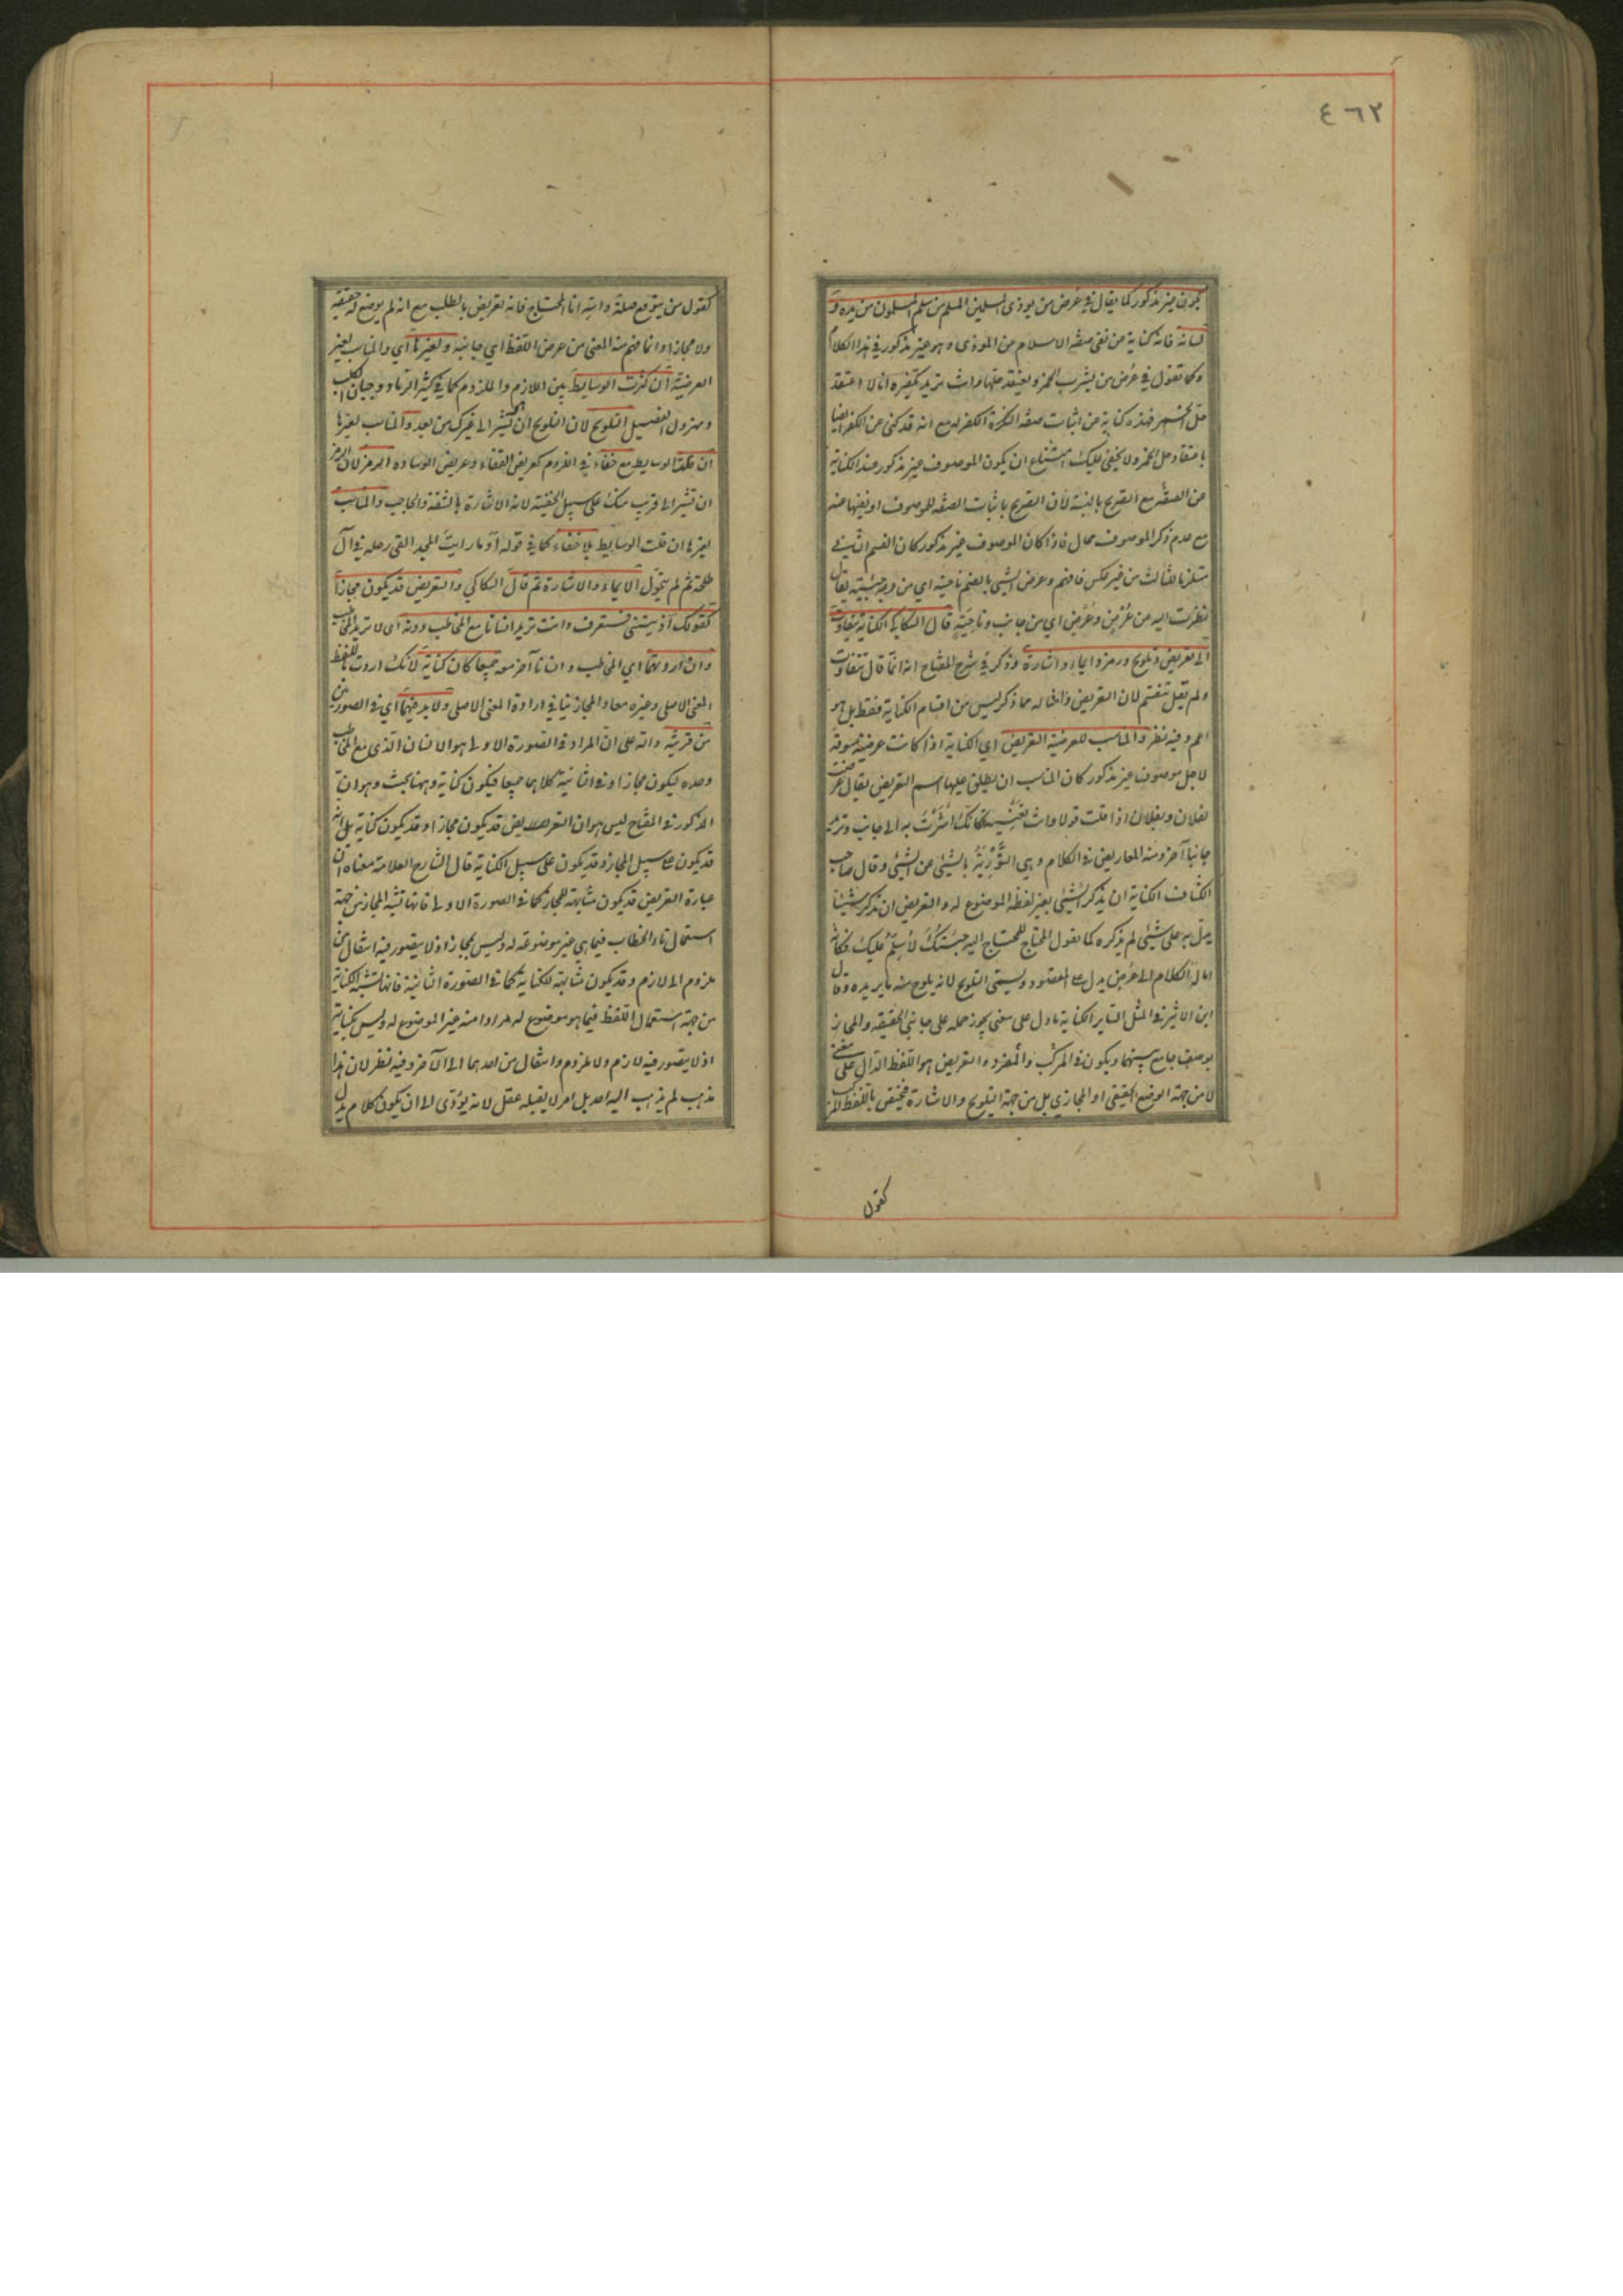 ٤٦٢
يكون غير مذكور كما يقال في عرض من يوذى المسلمين المسلم من سلم المسلمون من يده و
لسانه فانه كناية عن نفى صفة الاسلام عن الموذى وهو غير مذكور في هذا الكلام
وكما تقول في عرض من يشرب الخمر ويعتقد حلها وانت تريد تكفيره انا لا اعتقد
حل الخمر فهذه كناية عن اثبات صفة الكفر له مع انه قد كنى عن الكفر ايضا
باعتقاد حل الخمر ولا يخفى عليك امتناع ان يكون الموصوف غير مذكور عند الكناية
عن الصفة مع التصريح بالنسبة لان التصريح باثبات الصفة للموصوف او نفيها عنه
مع عدم ذكر الموصوف محال فاذا كان الموصوف غير مذكور كان القسم الثاني
مستلزما للثالث من غير عكس فافهم وعرض الشيئ بالضم ناحيته اي من وجه جئته يقال
نظرت اليه عن عُرْض وعُرُض اي من جانب وناحية قال السكاكي الكناية تتفاوت
الى تعريض وتلويح ورمز وايماء واشارة وذكر في شرح المفتاح انه انما قال تتفاوت
ولم يقل تنقسم لان التعريض وامثاله مما ذكر ليس من اقسام الكناية فقط بل هو
اعم وفيه نظر والمناسب للعرضية التعريض اي الكناية اذا كانت عرضية مسوقة
لاجل موصوف غير مذكور كان المناسب ان يطلق عليها اسم التعريض يقال عرضت
لفلان وبفلان اذا قلت قولا وانت تعنيه فكانك اشرت به الى جانب وتريد
جانبا آخر ومنه المعاريض في الكلام وهي التورية بالشيئ عن الشيئ وقال صاحب
الكشاف الكناية ان يذكر الشيئ بغير لفظه الموضوع له والتعريض ان تذكر شيئا
يدل به على شيئ لم يذكره كما يقول المحتاج للمحتاج اليه جئتك لأسلم عليك فكانه
امالة الكلام الى عرض يدل على المقصود ويسمى التلويح لانه يلوح منه ما يريده وقال
ابن الاثير في المثل السائر الكناية ما دل على معنى يجوز حمله على جانبي الحقيقة والمجاز
بوصف جامع بينهما ويكون في المركب والمفرد والتعريض هو اللفظ الدال على معنى
لا من جهة الوضع الحقيقي او المجازي بل من جهة التلويح والاشارة فيختص باللفظ المركب
كقول
كقول من يتوقع صلة والله انا المحتاج فانه تعريض بالطلب مع انه لم يوضع له حقيقة
ولا مجازا وانما فهم منه المعنى من عرض اللفظ اي جانبه ولغيرها اي والمناسب لغير
العرضية ان كثرت الوسايط بين اللازم والملزوم كما في كثير الرماد وجبان الكلب
ومهزول الفصيل التلويح لان التلويح ان تشير الى غيرك من بعد والمناسب لغيرها
ان قلت الوسايط مع خفاء في اللزوم كعريض القفاء وعريض الوساده الرمز لان الرمز
ان تشير الى قريب منك على سبيل الخفية لانه الاشارة بالشفة والحاجب والمناسب
لغيرها ان قلت الوسايط بلا خفاء كما في قوله أوما رايت المجد القى رحله في آل
طلحة ثم لم يتحول الايماء والاشارة ثم قال السكاكي والتعريض قد يكون مجازا
كقولك آذيتني فستعرف وانت تريد انسانا مع المخاطب دونه اى لا تريد المخاطب
وان اردتهما اي المخاطب وانسانا آخر معه جميعا كان كناية لانك اردت باللفظ
المعنى الاصلى وغيره معا والمجاز ينافي ارادة المعنى الاصلى ولا بد فيهما اي في الصورتين
من قرينة دالة على ان المراد في الصورة الاولى هو الانسان الذي مع المخاطب
وحده ليكون مجازا وفي الثانية كلاهما جميعا فيكون كناية وههنا بحث وهو ان
المذكور في المفتاح ليس هو ان التعريض قد يكون مجازا وقد يكون كناية بل انه
قد يكون على سبيل المجاز وقد يكون على سبيل الكناية قال الشارح العلامة معناه ان
عبارة التعريض قد يكون مشابهة للمجاز كما في الصورة الاولى فانها تشبه المجاز من جهة
استعمال تاء الخطاب فيما هي غير موضوعة له وليس بمجاز اذ لا يتصور فيه انتقال من
ملزوم الى لازم وقد يكون مشابهة للكناية كما في الصورة الثانية فانها تشبه الكناية
من جهة استعمال اللفظ فيما هو موضوع له مرادا منه غير الموضوع له وليس بكناية
اذ لا يتصور فيه لازم ولا ملزوم وانتقال من احدهما الى الآخر وفيه نظر لان هذا
مذهب لم يذهب اليه احد بل امر لا يقبله عقل لانه يؤدى الى ان يكون كلام يدل